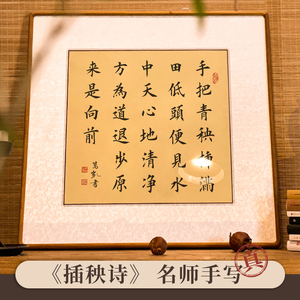 手把青秧插滿
田低頭便見水
中天心地清净
方為道退步原
来是向前
《插秧诗》 名师手写
真